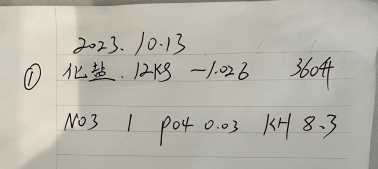 2023.10.13
① 化盐.12KG —1.026 360升
NO3 1 PO4 0.03 KH 8.3